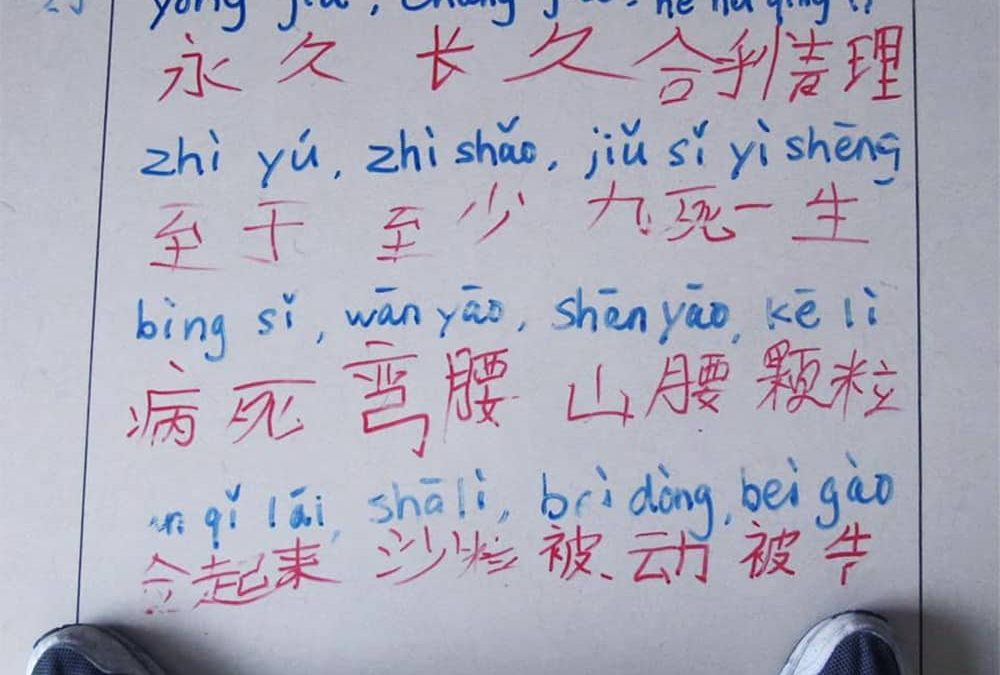 永久 长久 合乎情理
zhì yú, zhì shǎo, jiǔ sǐ yì shēng
至于 至少 九死一生
bìng sǐ, wān yāo, shān yāo, kē lì
病死 弯腰 山腰 颗粒
qǐ lái, shā lì, bèi dòng, bèi gào
起来 沙粒 被动 被